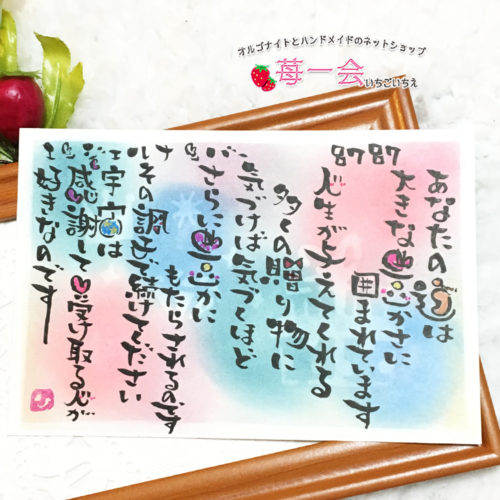 オルゴナイトとハンドメイドのネットショップ
苺一会
いちごいちえ
エンジェルナンバー 8787
あなたの道は
大きな豊かさに
囲まれています
人生が与えてくれる
多くの贈り物に
気づけば気づくほど
さらに豊かに
もたらされるのです
その調子で続けてください
宇宙は
感謝して受け取る心が
好きなのです